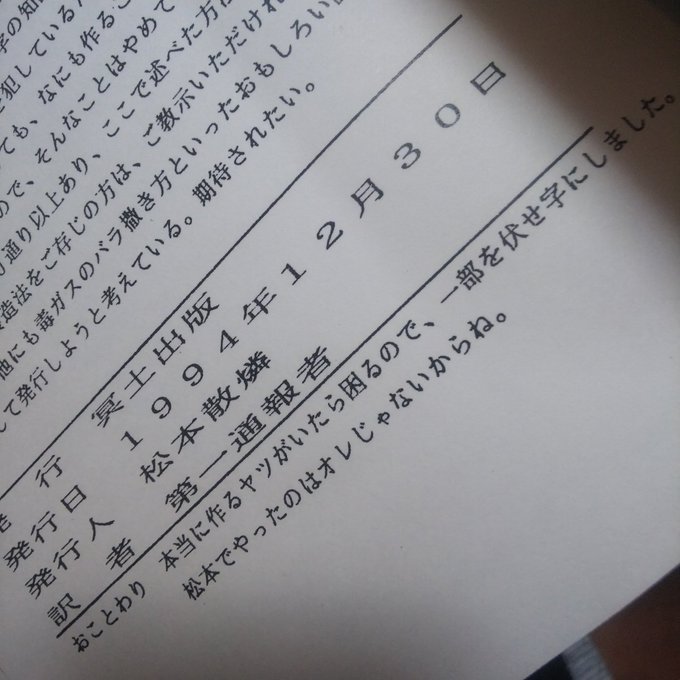 字の知
犯している
ても、なにも作るこ
ので、そんなことはやめて
通り以上あり、ここで述べた方
造法をご存じの方は、ご教示いただけれ
他にも毒ガスのバラ撒き方といったおもしろい
して発行しようと考えている。期待されたい。
発行 冥土出版
発行日 1994年12月30日
発行人 松本散燐
訳者 第一通報者
おことわり 本当に作るヤツがいたら困るので、一部を伏せ字にしました。
松本でやったのはオレじゃないからね。